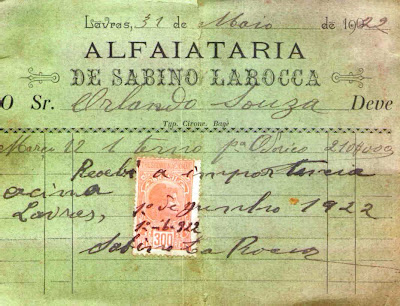 Lavras, 31 de Maio de 1922
ALFAIATARIA
DE SABINO LAROCCA
O Sr. Orlando Souza Deve
Typ. Cironc. Bagé
Março 12 1 terno pª 210$000
Recebi a importancia
acima
Lavras, 1º de Junho 1922
1º-6-922
300
Sabino La Rocca